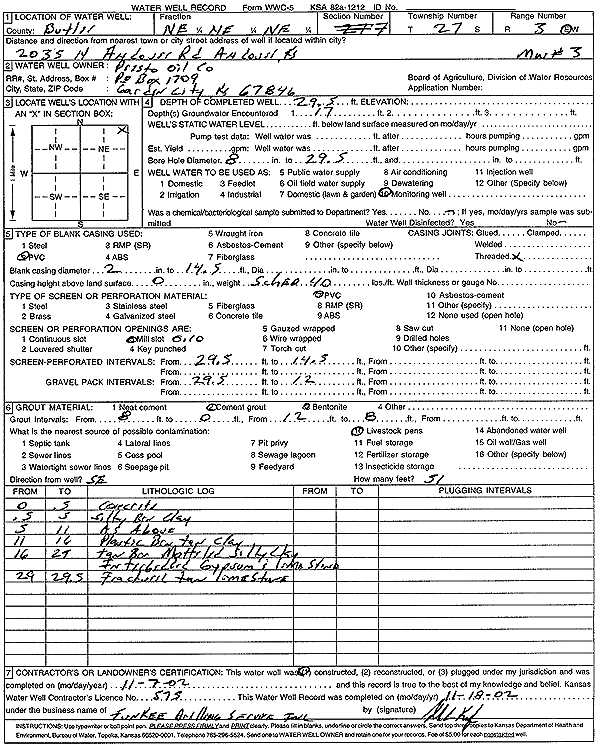 WATER WELL RECORD Form WWC-5 KSA 82a-1212 ID No.
1 LOCATION OF WATER WELL: Fraction Section Number Township Number Range Number
County: Butler NE ¼ NE ¼ NE ¼ T 27 S R 3 E/W
Distance and direction from nearest town or city street address of well if located within city?
2035 N Andover Rd Andover, Ks MW #3
2 WATER WELL OWNER: Presto Oil Co
RR#, St. Address, Box # : PO Box 1709 Board of Agriculture, Division of Water Resources
City, State, ZIP Code : Garden City Ks 67846 Application Number:
3 LOCATE WELL'S LOCATION WITH AN "X" IN SECTION BOX:
N
X
NW NE
W E
SW SE
S
1 Mile
4 DEPTH OF COMPLETED WELL 29.5 ft. ELEVATION:
Depth(s) Groundwater Encountered 1. 17 ft. 2. ft. 3. ft.
WELL'S STATIC WATER LEVEL ft. below land surface measured on mo/day/yr
Pump test data: Well water was ft. after hours pumping gpm
Est. Yield gpm: Well water was ft. after hours pumping gpm
Bore Hole Diameter 8 in. to 29.5 ft., and in. to ft.
WELL WATER TO BE USED AS: 5 Public water supply 8 Air conditioning 11 Injection well
1 Domestic 3 Feedlot 6 Oil field water supply 9 Dewatering 12 Other (Specify below)
2 Irrigation 4 Industrial 7 Domestic (lawn & garden) 10 Monitoring well
Was a chemical/bacteriological sample submitted to Department? Yes No ; If yes, mo/day/yrs sample was submitted Water Well Disinfected? Yes No
5 TYPE OF BLANK CASING USED: 5 Wrought iron 8 Concrete tile CASING JOINTS: Glued Clamped
1 Steel 3 RMP (SR) 6 Asbestos-Cement 9 Other (specify below) Welded
2 PVC 4 ABS 7 Fiberglass Threaded X
Blank casing diameter 2 in. to 14.5 ft., Dia in. to ft., Dia in. to ft.
Casing height above land surface 0 in., weight Sch 40 lbs./ft. Wall thickness or gauge No.
TYPE OF SCREEN OR PERFORATION MATERIAL: 7 PVC 10 Asbestos-cement
1 Steel 3 Stainless steel 5 Fiberglass 8 RMP (SR) 11 Other (specify)
2 Brass 4 Galvanized steel 6 Concrete tile 9 ABS 12 None used (open hole)
SCREEN OR PERFORATION OPENINGS ARE: 5 Gauzed wrapped 8 Saw cut 11 None (open hole)
1 Continuous slot 3 Mill slot 0.10 6 Wire wrapped 9 Drilled holes
2 Louvered shutter 4 Key punched 7 Torch cut 10 Other (specify) ft.
SCREEN-PERFORATED INTERVALS: From 29.5 ft. to 14.5 ft., From ft. to ft.
From ft. to ft., From ft. to ft.
GRAVEL PACK INTERVALS: From 29.5 ft. to 12 ft., From ft. to ft.
From ft. to ft., From ft. to ft.
6 GROUT MATERIAL: 1 Neat cement 2 Cement grout 3 Bentonite 4 Other
Grout Intervals: From 8 ft. to 0 ft., From 12 ft. to 8 ft., From ft. to ft.
What is the nearest source of possible contamination: 10 Livestock pens 14 Abandoned water well
1 Septic tank 4 Lateral lines 7 Pit privy 11 Fuel storage 15 Oil well/Gas well
2 Sewer lines 5 Cess pool 8 Sewage lagoon 12 Fertilizer storage 16 Other (specify below)
3 Watertight sewer lines 6 Seepage pit 9 Feedyard 13 Insecticide storage
Direction from well? SE How many feet? 51
FROM TO LITHOLOGIC LOG FROM TO PLUGGING INTERVALS
0 .5 Concrete
.5 5 Silty Brn Clay
5 11 As Above
11 16 Plastic Brn Tan Clay
16 29 Tan Brn Mottled Silty Clay
Interbedded Gypsum & Limestone
29 29.5 Fractured Tan Limestone
7 CONTRACTOR'S OR LANDOWNER'S CERTIFICATION: This water well was (1) constructed, (2) reconstructed, or (3) plugged under my jurisdiction and was
completed on (mo/day/year) 11-7-02 and this record is true to the best of my knowledge and belief. Kansas
Water Well Contractor's Licence No. 575 This Water Well Record was completed on (mo/day/yr) 11-18-02
under the business name of Funkee Drilling Service Inc by (signature)
INSTRUCTIONS: Use typewriter or ball point pen. PLEASE PRESS FIRMLY and PRINT clearly. Please fill in blanks, underline or circle the correct answers. Send top three copies to Kansas Department of Health and
Environment, Bureau of Water, Topeka, Kansas 66620-0001. Telephone 785-296-5524. Send one to WATER WELL OWNER and retain one for your records. Fee of $5.00 for each constructed well.